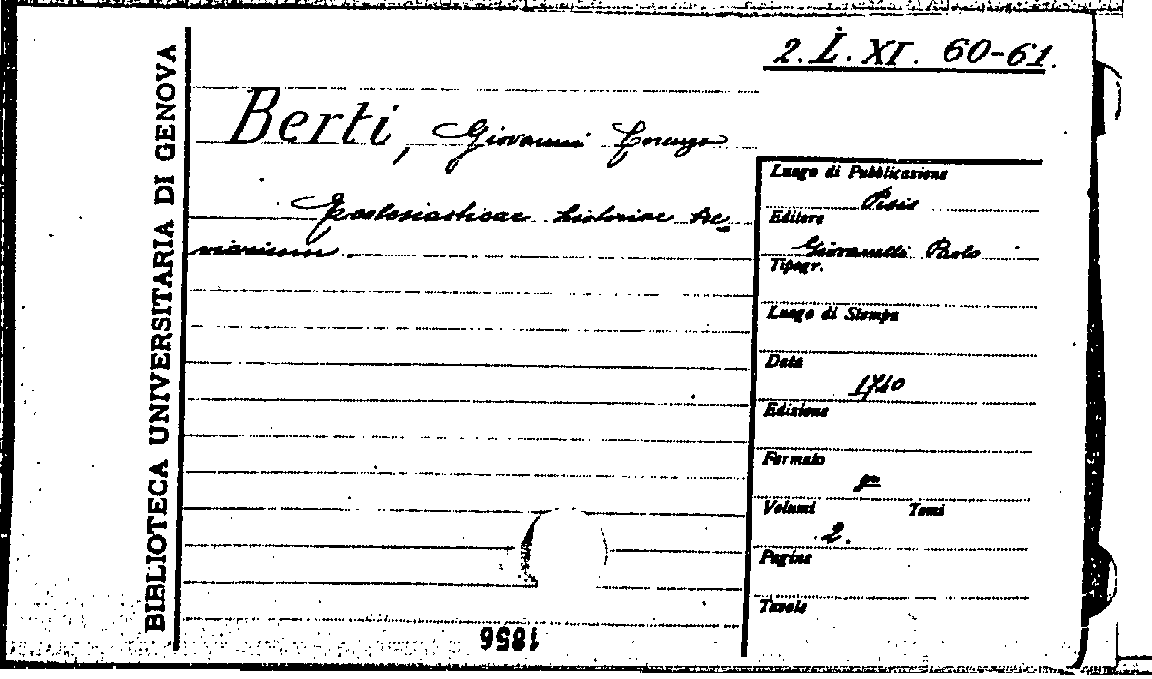 BIBLIOTECA UNIVERSITARIA DI GENOVA
2. L. XI. 60-61.
Berti, Giovanni Lorenzo
Ecclesiasticae historiae bre-
viarium
Luogo di Pubblicazione
Pisis
Editore
Giovannelli Paolo
Tipogr.
Luogo di Stampa
Data
1740
Edizione
Formato
Volumi Tomi
2.
Pagine
Tavole
1856